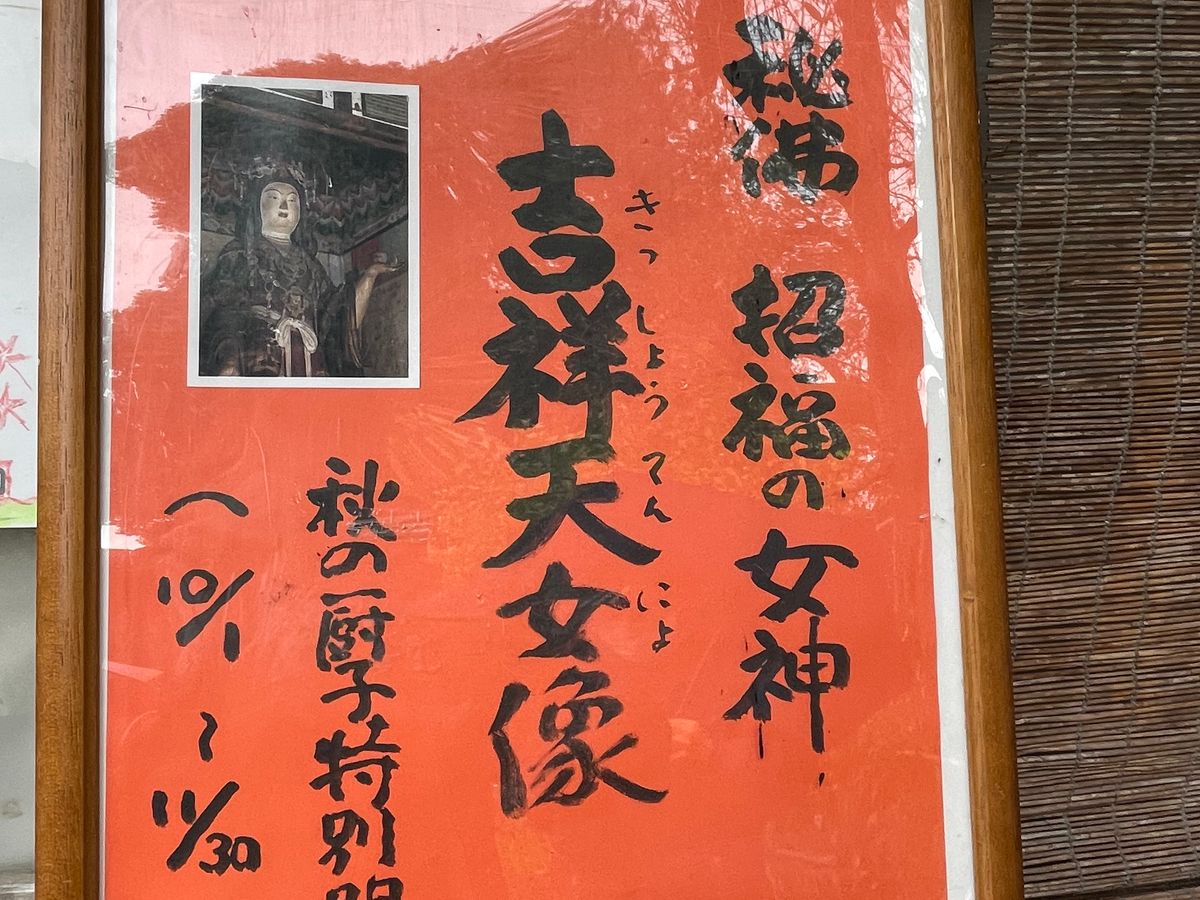 秘佛 招福の女神
吉祥天女像
きっしょうてんにょ
秋の厨子特別開
(10/1〜11/30